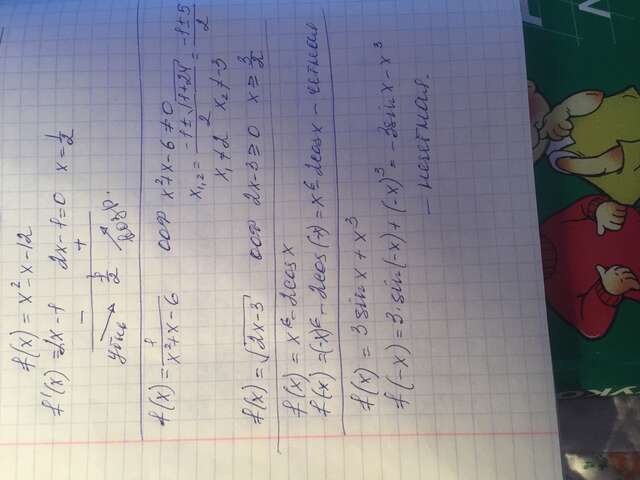 f(x) = x² - x - 12
f'(x) = 2x - 1    2x - 1 = 0    x = 1/2
-    +
1/2
убыв    возр.
f(x) = 1/(x² + x - 6)    ООФ    x² + x - 6 ≠ 0
x₁,₂ = (-1 ± √(1+24))/2 = (-1 ± 5)/2
x₁ ≠ 2    x₂ ≠ -3
f(x) = √(2x - 3)    ООФ    2x - 3 ≥ 0    x ≥ 3/2
f(x) = x⁶ - 2cos x
f(x) = (-x)⁶ - 2cos(-x) = x⁶ - 2cos x - четная
f(x) = 3 sin x + x³
f(-x) = 3·sin(-x) + (-x)³ = -3 sin x - x³
- нечетная.